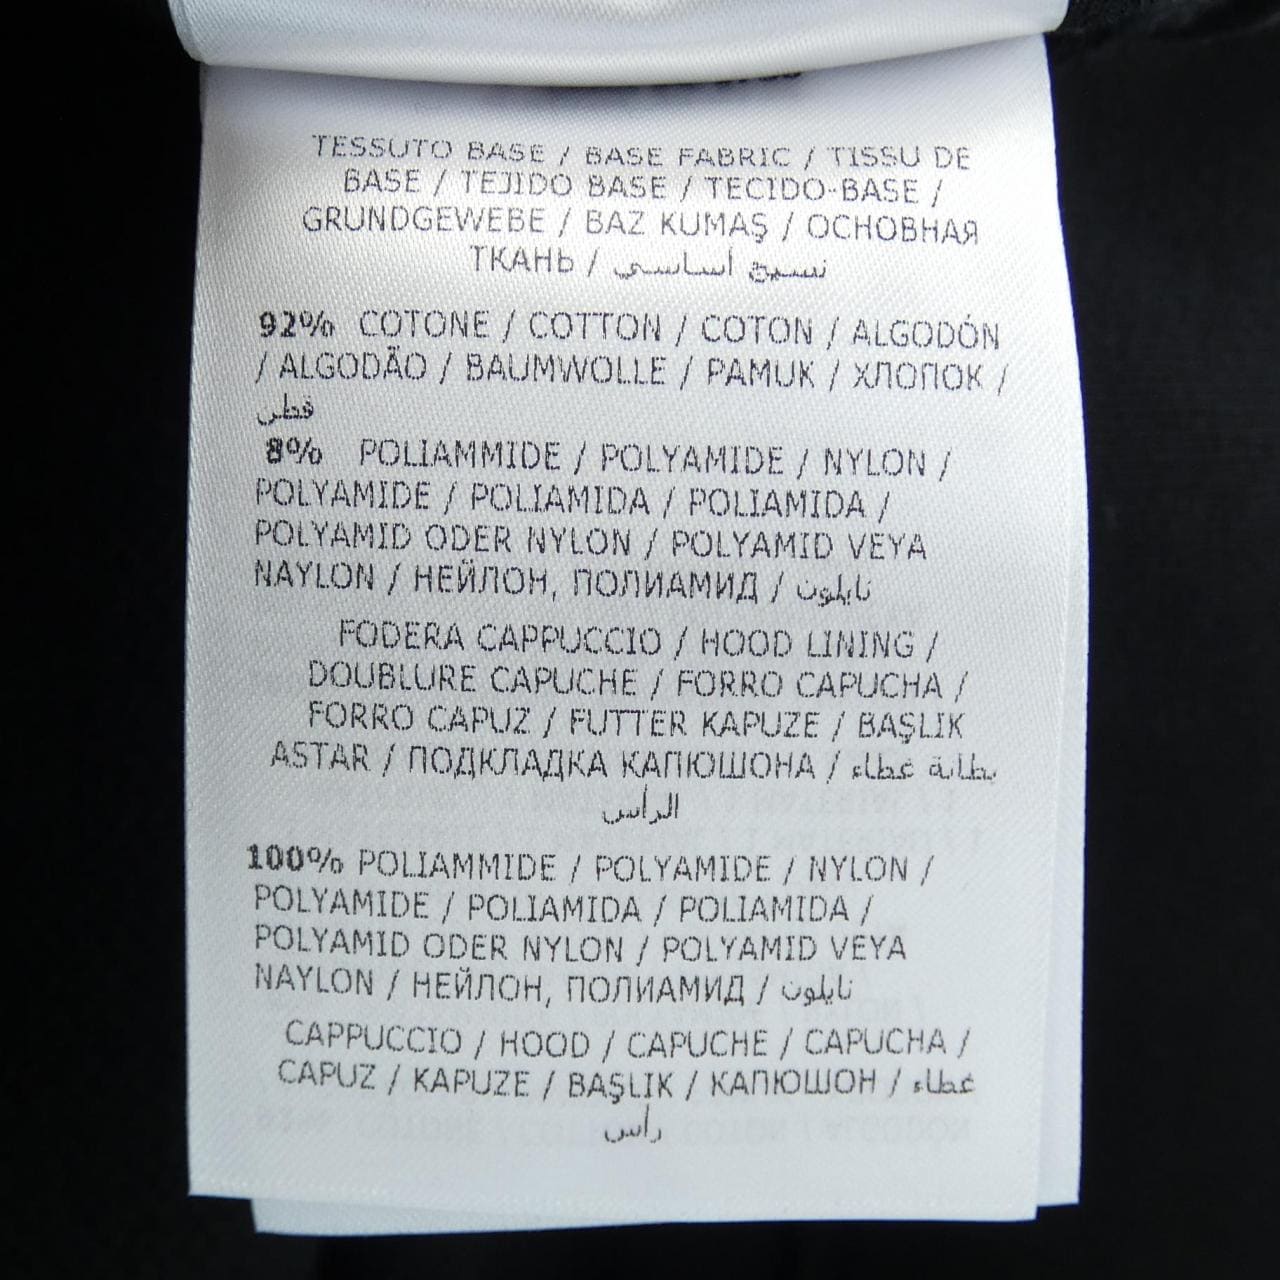 TESSUTO BASE / BASE FABRIC / TISSU DE
BASE / TEJIDO BASE / TECIDO-BASE /
GRUNDGEWEBE / BAZ KUMAŞ / ОСНОВНАЯ
ТКАНЬ / نسيج أساسي
92% COTONE / COTTON / COTON / ALGODÓN
/ ALGODÃO / BAUMWOLLE / PAMUK / ХЛОПОК /
قطن
8% POLIAMMIDE / POLYAMIDE / NYLON /
POLYAMIDE / POLIAMIDA / POLIAMIDA /
POLYAMID ODER NYLON / POLYAMID VEYA
NAYLON / НЕЙЛОН, ПОЛИАМИД / نايلون
FODERA CAPPUCCIO / HOOD LINING /
DOUBLURE CAPUCHE / FORRO CAPUCHA /
FORRO CAPUZ / FUTTER KAPUZE / BAŞLIK
ASTAR / ПОДКЛАДКА КАПЮШОНА / بطانة غطاء
الرأس
100% POLIAMMIDE / POLYAMIDE / NYLON /
POLYAMIDE / POLIAMIDA / POLIAMIDA /
POLYAMID ODER NYLON / POLYAMID VEYA
NAYLON / НЕЙЛОН, ПОЛИАМИД / نايلون
CAPPUCCIO / HOOD / CAPUCHE / CAPUCHA /
CAPUZ / KAPUZE / BAŞLIK / КАПЮШОН / غطاء
رأس